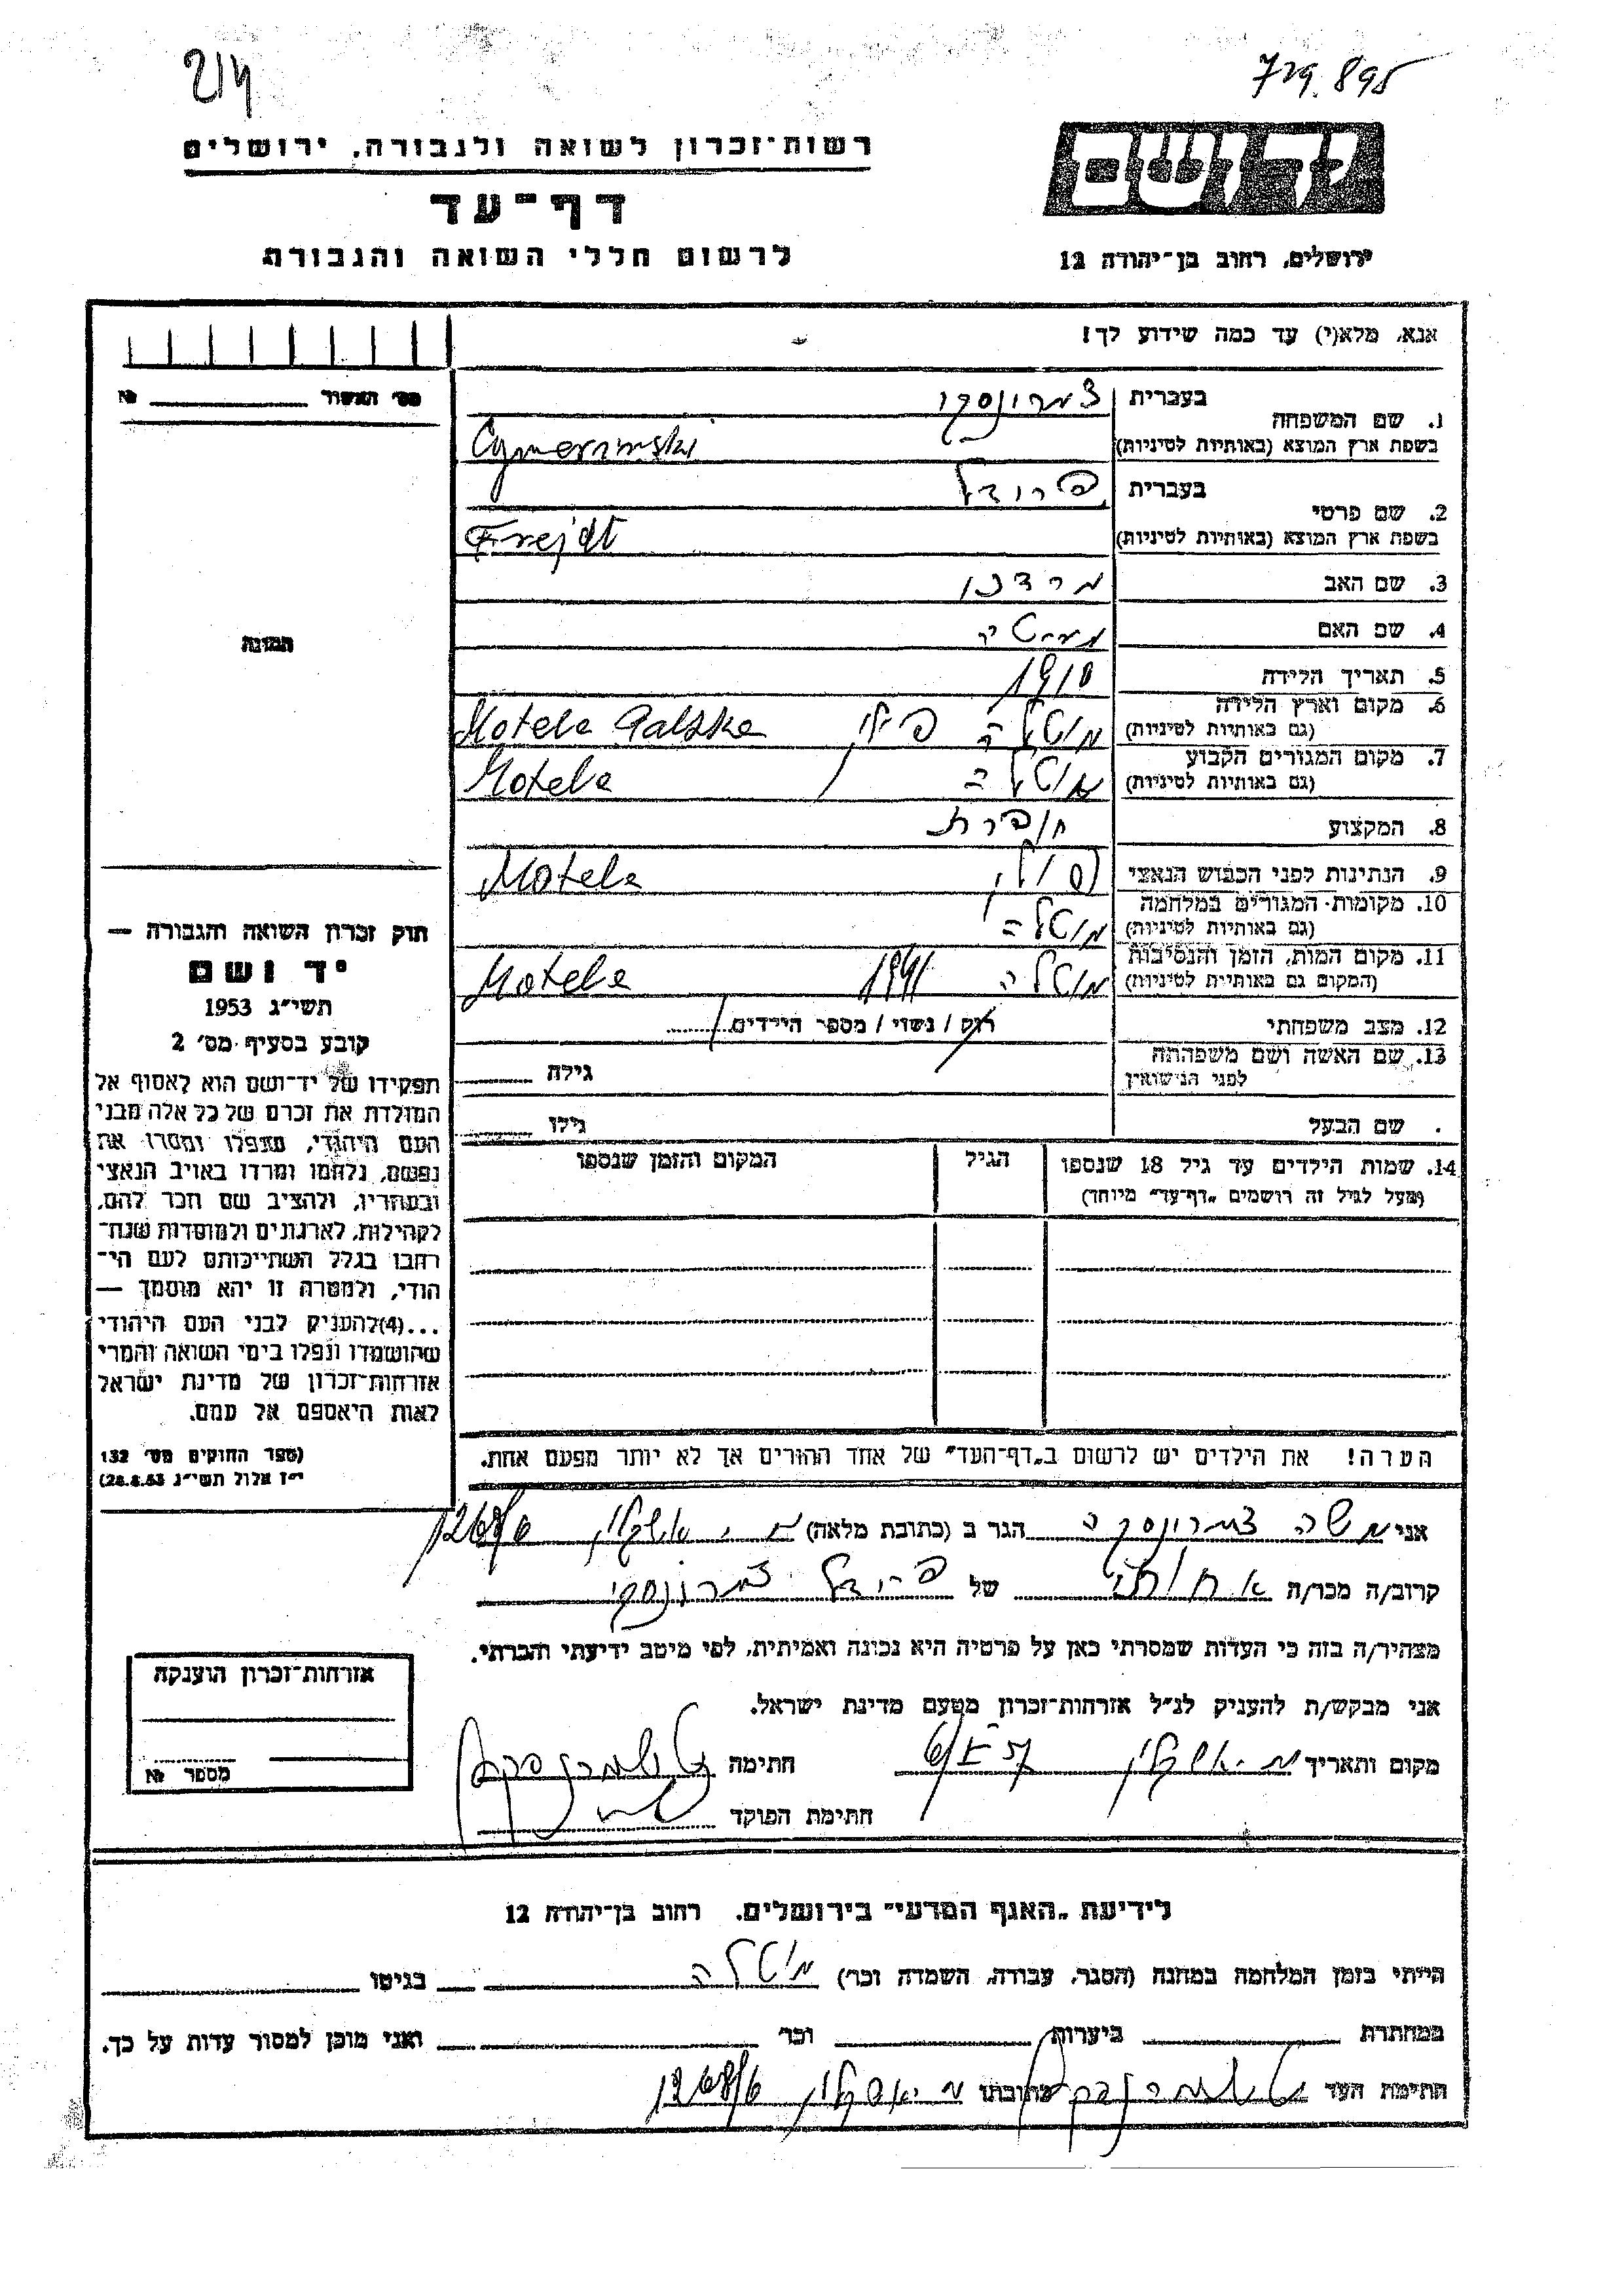 214
729.895
רשות־זכרון לשואה ולגבורה, ירושלים
דף־עד
לרשום חללי השואה והגבורה
ירושלים, רחוב בן־יהודה 12
אנא, מלא(י) עד כמה שידוע לך!
מס׳ האשור № 
1. שם המשפחה בעברית
בשפת ארץ המוצא (באותיות לטיניות) Cymerinski
2. שם פרטי בעברית פרידל
בשפת ארץ המוצא (באותיות לטיניות) Frejdt
3. שם האב מרדכי
4. שם האם
5. תאריך הלידה 1910
6. מקום וארץ הלידה
(גם באותיות לטיניות) מוטלה פולין Motele Palske
7. מקום המגורים הקבוע
(גם באותיות לטיניות) מוטלה Motele
8. המקצוע תופרת
9. הנתינות לפני הכבוש הנאצי פולין Motele
10. מקומות־המגורים במלחמה
(גם באותיות לטיניות) מוטלה
11. מקום המות, הזמן והנסיבות
(המקום גם באותיות לטיניות) מוטלה 1941 Motele
12. מצב משפחתי רוק / נשוי / מספר הילדים
13. שם האשה ושם משפחתה
לפני הנישואין גילה
שם הבעל גילו
14. שמות הילדים עד גיל 18 שנספו
(מעל לגיל זה רושמים „דף־עד״ מיוחד)
הגיל
המקום והזמן שנספו
הערה! את הילדים יש לרשום ב„דף־העד״ של אחד ההורים אך לא יותר מפעם אחת.
התמונה
חוק זכרון השואה והגבורה —
יד ושם
תשי״ג 1953
קובע בסעיף מס׳ 2
תפקידו של יד־ושם הוא לאסוף אל
המולדת את זכרם של כל אלה מבני
העם היהודי, שנפלו ומסרו את
נפשם, נלחמו ומרדו באויב הנאצי
ובעוזריו, ולהציב שם וזכר להם,
לקהילות, לארגונים ולמוסדות שנח־
רבו בגלל השתייכותם לעם הי־
הודי, ולמטרה זו יהא מוסמך —
...(4)להעניק לבני העם היהודי
שהושמדו ונפלו בימי השואה והמרי
אזרחות־זכרון של מדינת ישראל
לאות היאספם אל עמם.
(ספר החוקים מס׳ 132
י״ז אלול תשי״ג 28.8.53)
אני משה הגר ב (כתובת מלאה) אשקלון 1268/6
קרוב/ה מכר/ה של פרידל
מצהיר/ה בזה כי העדות שמסרתי כאן על פרטיה היא נכונה ואמיתית, לפי מיטב ידיעתי והכרתי.
אני מבקש/ת להעניק לנ״ל אזרחות־זכרון מטעם מדינת ישראל.
מקום ותאריך אשקלון חתימה
חתימת הפוקד
אזרחות־זכרון הוענקה
מספר №
לידיעת „האגף המדעי״ בירושלים, רחוב בן־יהודה 12
הייתי בזמן המלחמה במחנה (הסגר, עבודה, השמדה וכו׳) מוטלה בגיטו
במחתרת ביערות וכו׳ ואני מוכן למסור עדות על כך.
חתימת העד כתובתו אשקלון 1268/6